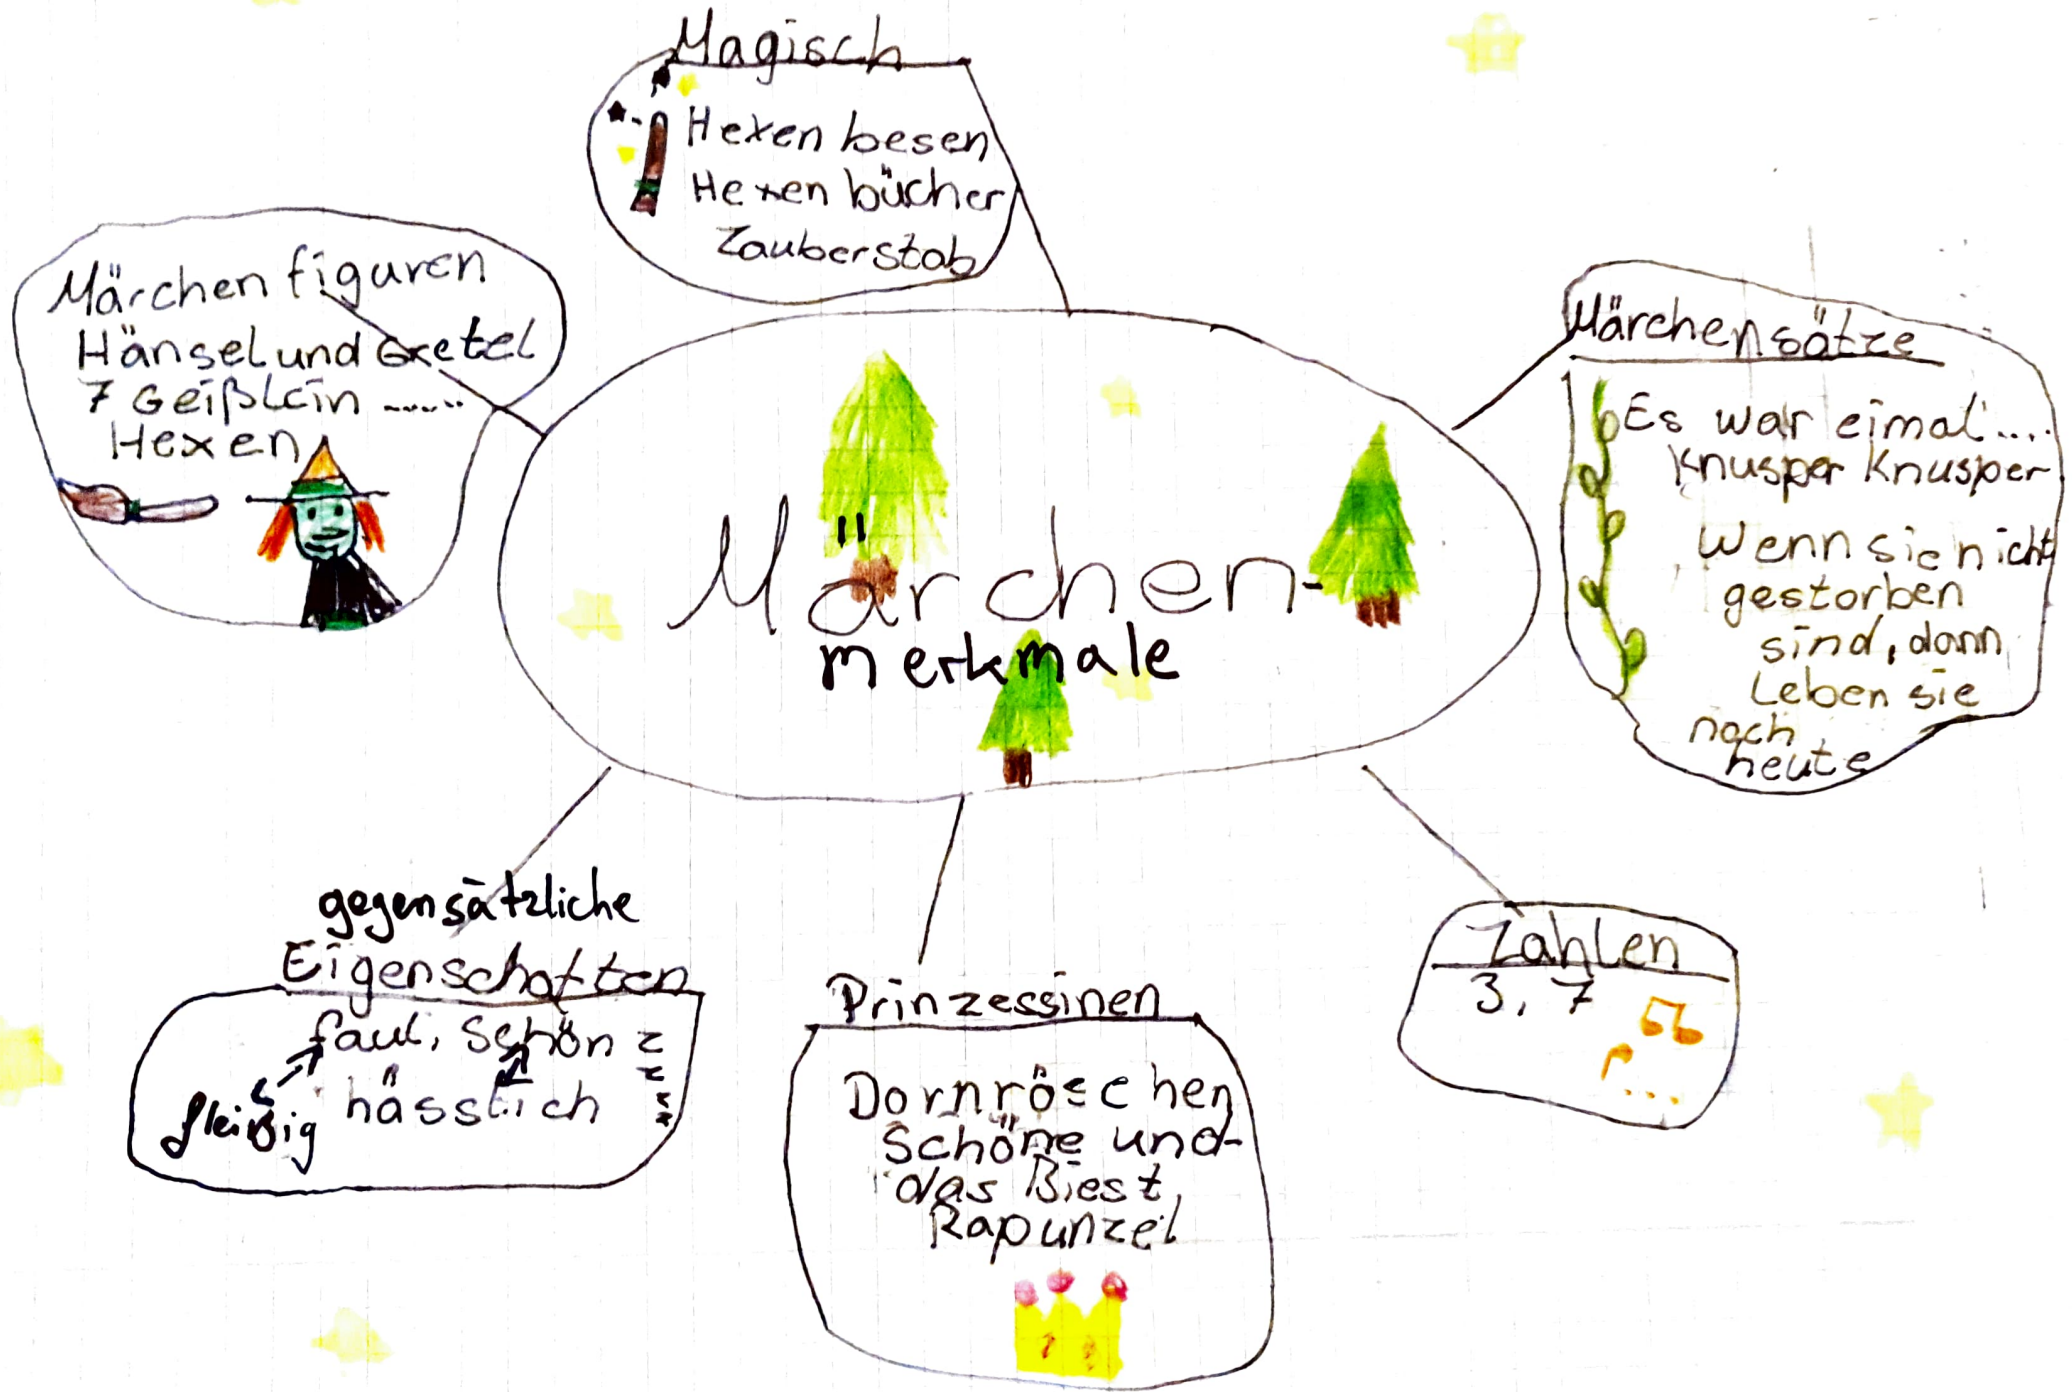 Magisch
Hexen besen
Hexen bücher
Zauberstab
Märchen figuren
Hänsel und Gretel
7 Geißlein ......
Hexen
Märchensätze
Es war eimal ....
Knusper Knusper
Wenn sie nicht
gestorben
sind, dann
Leben sie
noch
heute
Märchen-
merkmale
gegensätzliche
Eigenschaften
faul, schön
fleißig hässlich
Prinzessinen
Dornröschen
Schöne und
das Biest,
Rapunzel
Zahlen
3, 7
...